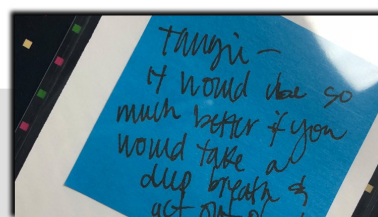 Tangii -
it would be so
much better if you
would take a
deep breath &
act